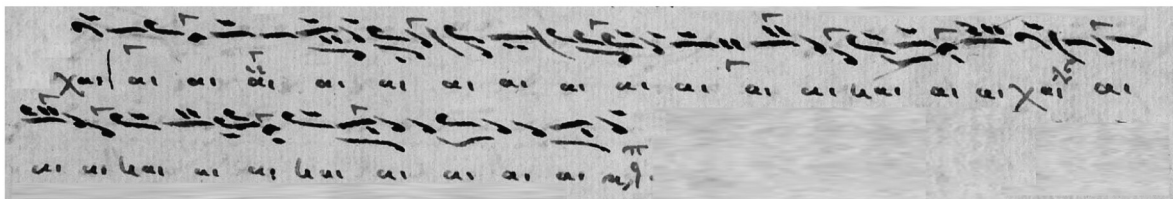 χαι αι αι αι αι αι αι αι αι αι αι αι αι και αι αι χαι αι
αι αι και αι αι και αι αι αι αι